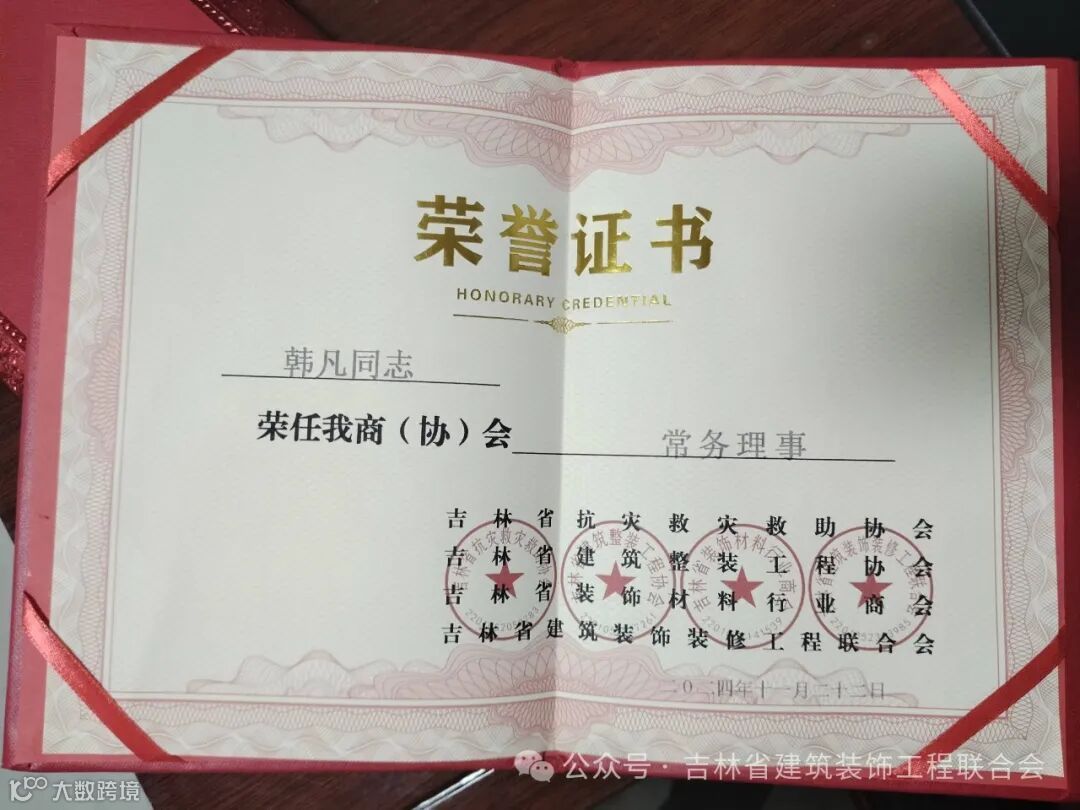 荣誉证书
HONORARY CREDENTIAL
韩凡同志
荣任我商（协）会 常务理事
吉林省抗灾救灾救助协会
吉林省建筑整装工程协会
吉林省装饰材料行业商会
吉林省建筑装饰装修工程联合会
二〇二四年十一月二十二日
公众号·吉林省建筑装饰工程联合会
大数跨境